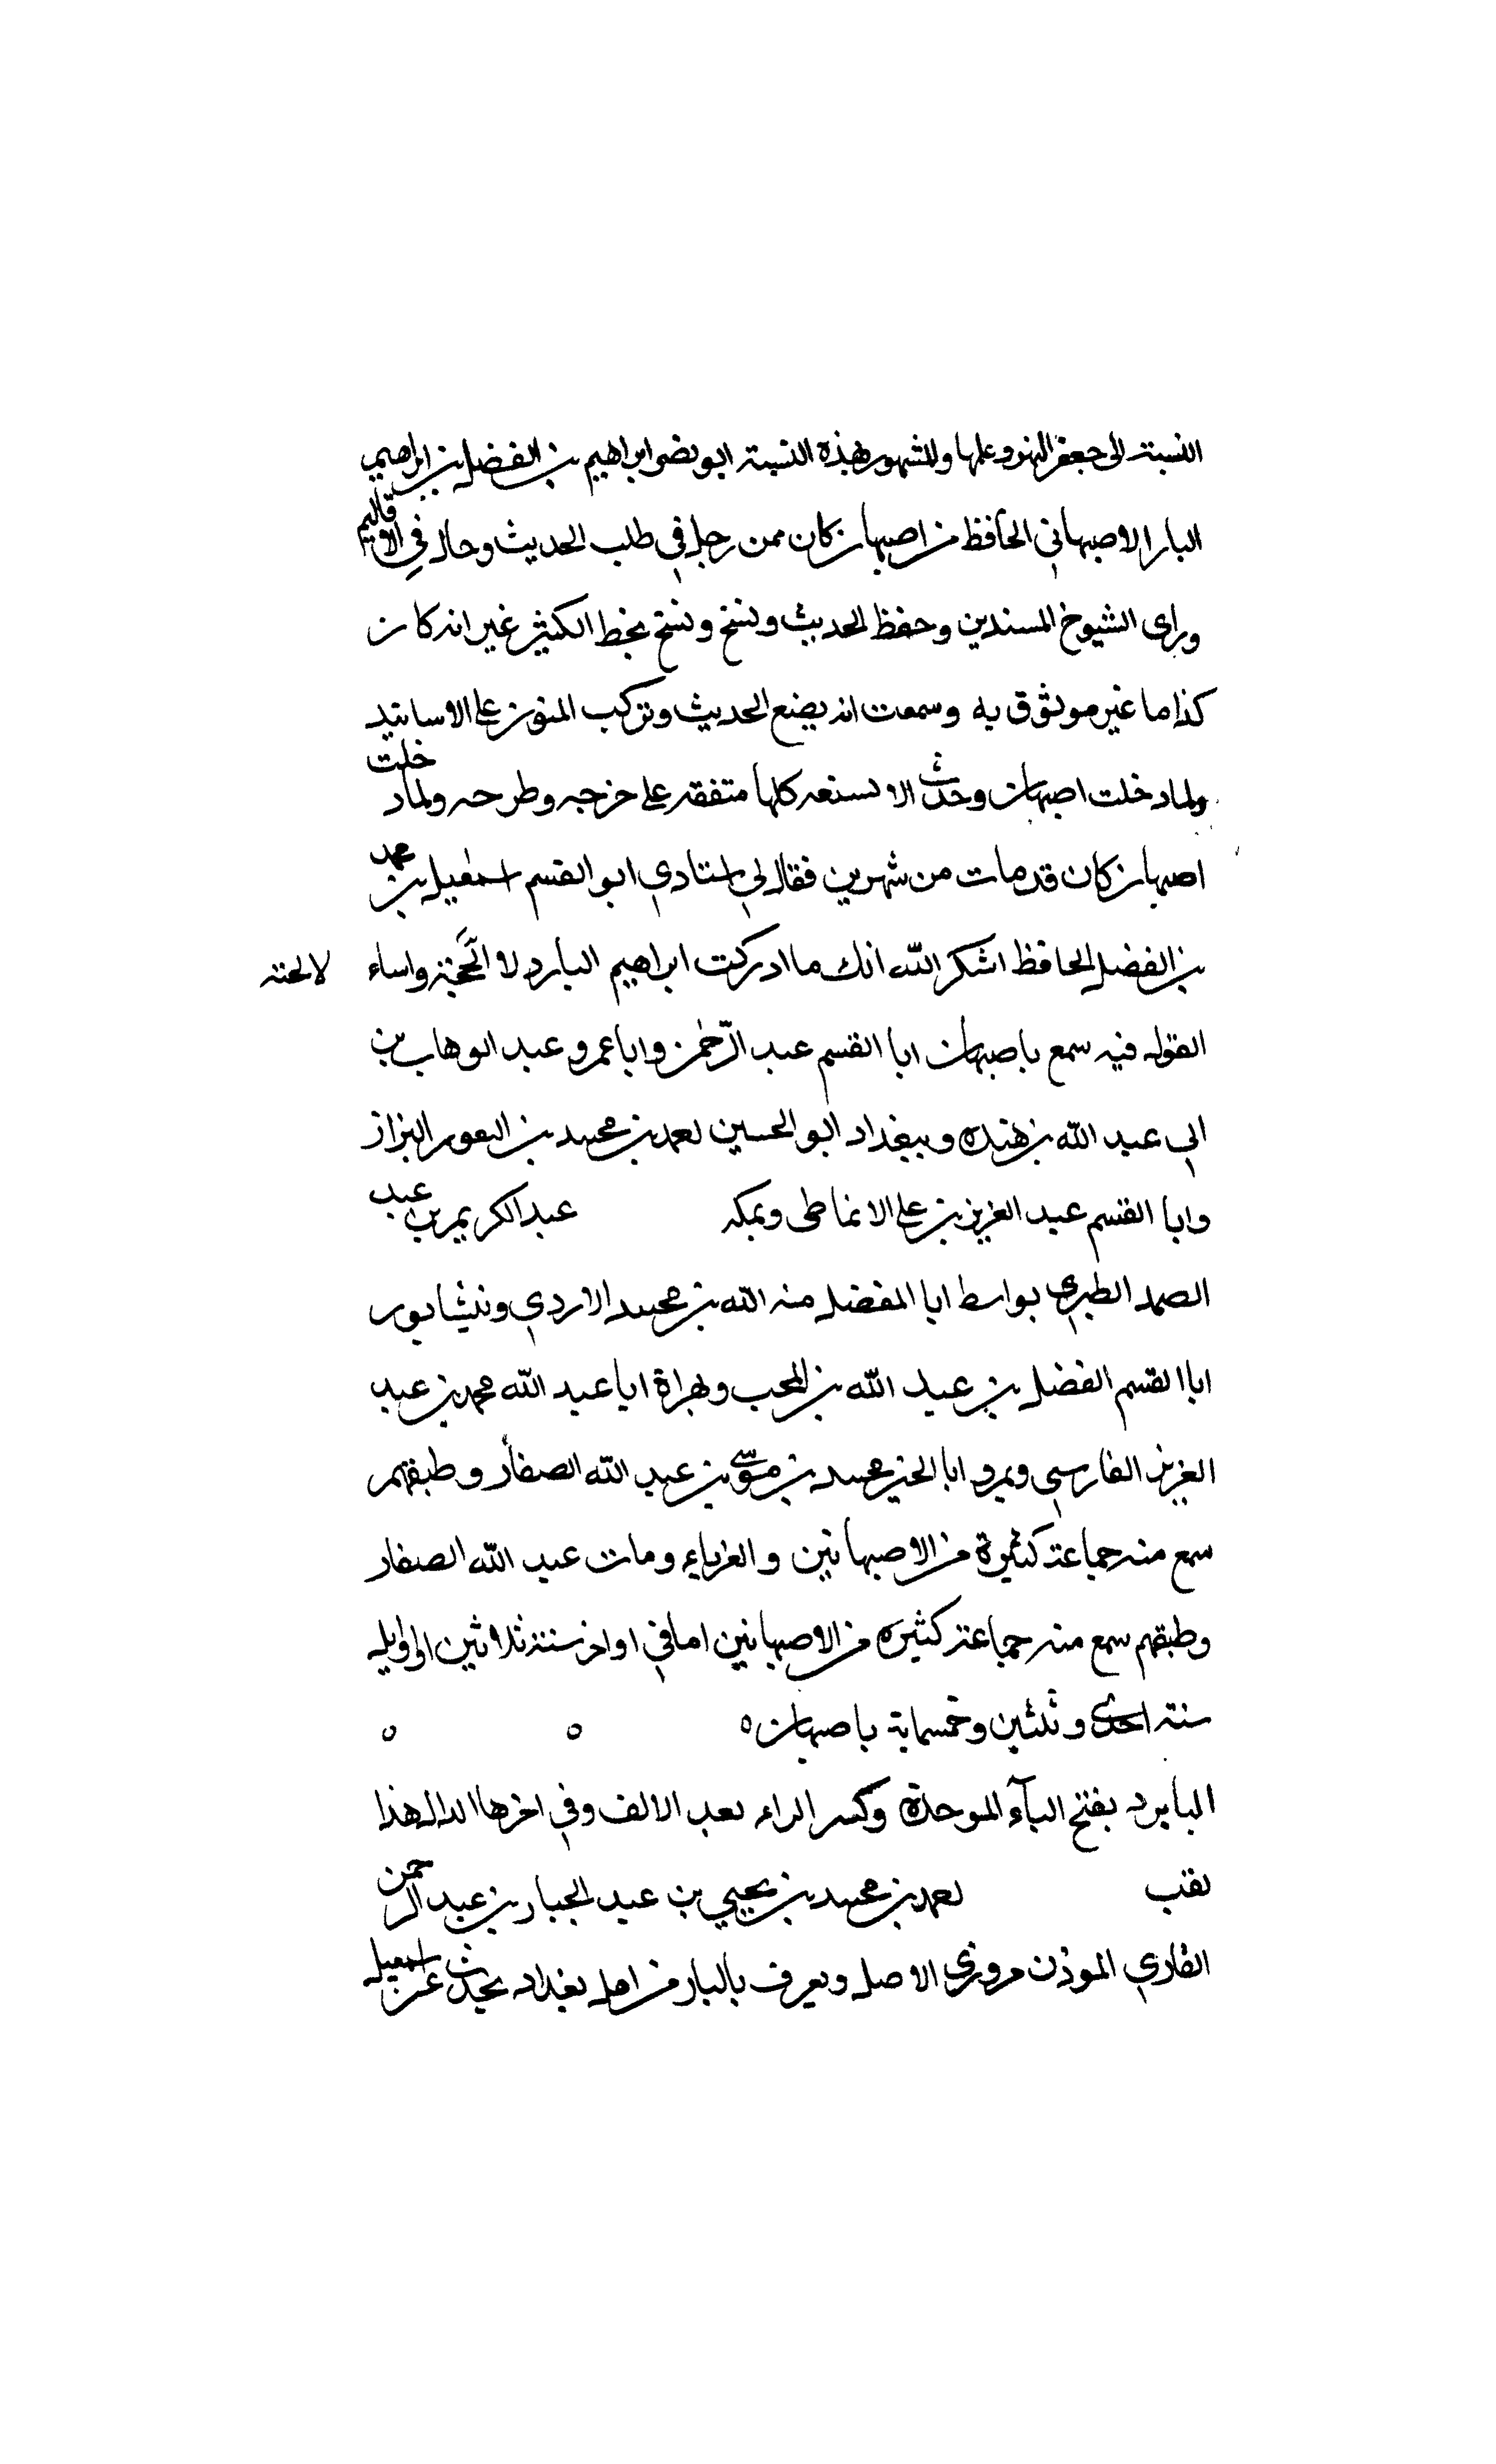 النسبة الى حفر البير وعملها والمشهور بهذه النسبة ابو نصر ابراهيم بن الفضل بن ابراهيم
البار الاصبهاني الحافظ من اصبهان كان ممن رحل في طلب الحديث وجال في الاقاليم
وراى الشيوخ المسندين وحفظ الحديث ونسخ ونسخ بخط الكثير غير انه كان
كذاما غير موثوق به وسمعت انه يضع الحديث وتركب المتون على الاسانيد
ولما دخلت اصبهان وحدث الا لسنعه كلها متفقه على جرحه وطرحه ولما دخلت
اصبهان كان قد مات من شهرين فقال لي استادي ابو القسم اسمعيل بن محمد
بن الفضل الحافظ اشكر الله انك ما ادركت ابراهيم البارد لا الحجته واساء لا لحقته
القول فيه سمع باصبهان ابا القسم عبد الرحمن وابا عمرو عبد الوهاب بن
ابي عبد الله بن هنده وببغداد ابو الحسين احمد بن محمد بن النعور البزاز
وابا القسم عبد العزيز بن علي الانماطى وبمكه عبد الكريم بن عبد
الصمد الطبري بواسط ابا المفضل منه الله بن محمد الازدي ونيشابور
ابا القسم الفضل بن عبد الله بن المحب وبهراة ابا عبد الله محمد بن عبد
العزيز الفارسي وبمرو ابا الخير محمد بن موسى بن عبد الله الصفار وطبقتهم
سمع منه جماعة كثيرة من الاصبهانين والغرباء ومات عبد الله الصفار
وطبقهم سمع منه جماعة كثيره من الاصبهانين اما في اواخر سنة ثلاثين او اوايل
سنة احدى وثلثين وخمسماية باصبهان ه ه ه
البارد بفتح البآء الموحدة وكسر الراء بعد الالف وفي اخرها الدال هذا
لقب احمد بن محمد بن يحيي بن عبد الجبار بن عبد الرحمن
القاري الموذن مروزي الاصل ويعرف بالبار من اهل بغداد يحدث عن اسمعيل